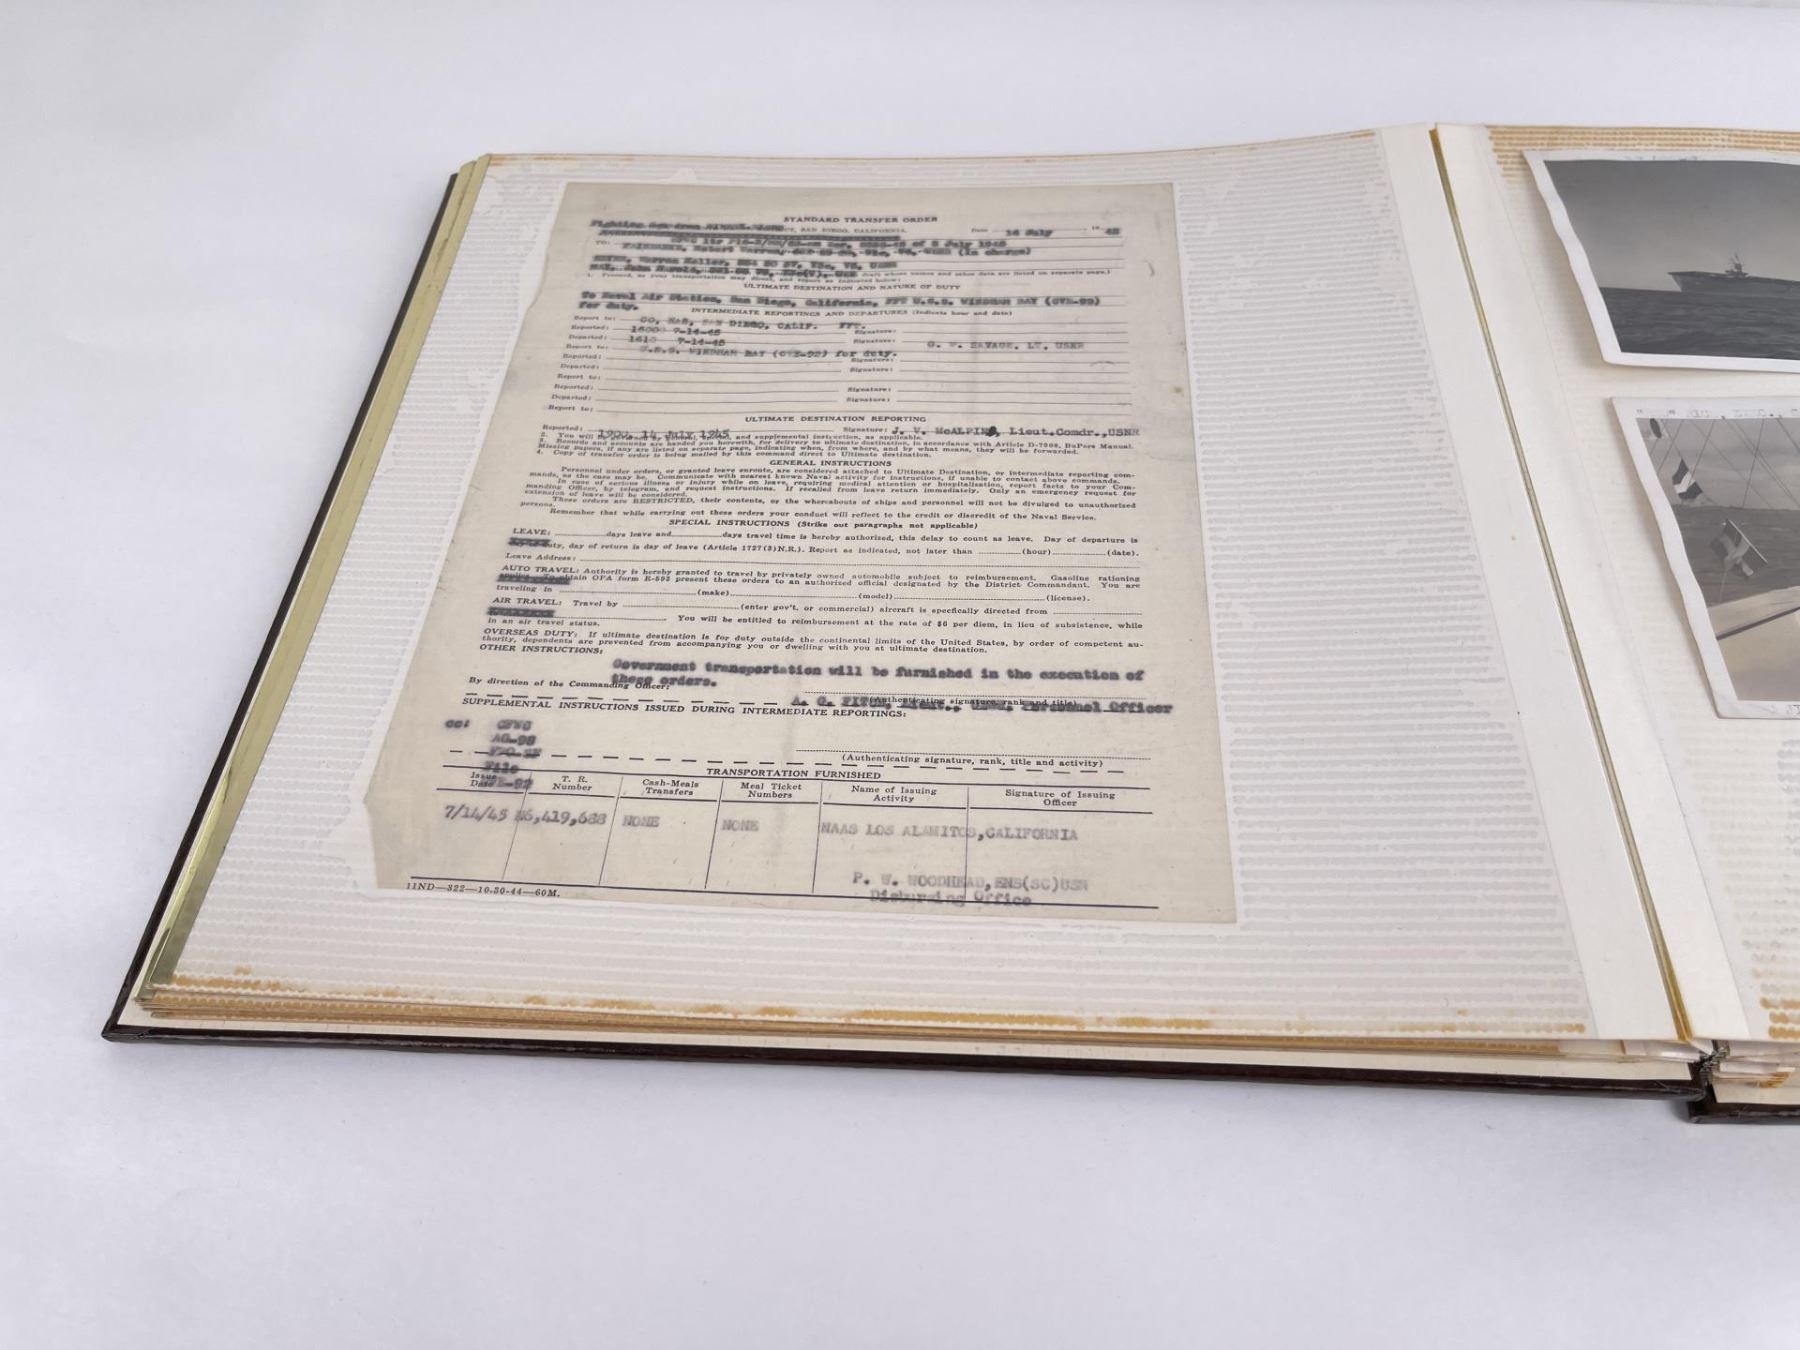 STANDARD TRANSFER ORDER
Fighting Squadron
SAN DIEGO, CALIFORNIA. Date 14 July 19 45
TO: CFWG ltr of 2 July 1945
FAIRBANKS, Robert Warren, USNR (In charge)
Warren Keller, USNR
MAY, John Harold,
1. Proceed, as your transportation may direct, and report as indicated below: (Draft whose names and other data are listed on separate page.)
ULTIMATE DESTINATION AND NATURE OF DUTY
To Naval Air Station, San Diego, California, FFT U.S.S. WINDHAM BAY (CVE-92)
for duty.
INTERMEDIATE REPORTINGS AND DEPARTURES (Indicate hour and date)
Report to: CO, NAS, SAN DIEGO, CALIF. FFT.
Reported: 1600 7-14-45 Signature:
Departed: 1610 7-14-45 Signature: G. W. SAVAGE, LT, USNR
Report to: U.S.S. WINDHAM BAY (CVE-92) for duty.
Reported: Signature:
Departed: Signature:
Report to:
Reported: Signature:
Departed: Signature:
Report to:
ULTIMATE DESTINATION REPORTING
Reported: 1900, 14 July 1945 Signature: J. V. McALPINE, Lieut.Comdr.,USNR
2. You will be governed by general, special, and supplemental instruction, as applicable.
3. Records and accounts are handed you herewith, for delivery to ultimate destination, in accordance with Article D-7008, BuPers Manual.
Missing papers, if any are listed on separate page, indicating when, from where, and by what means, they will be forwarded.
4. Copy of transfer order is being mailed by this command direct to Ultimate destination.
GENERAL INSTRUCTIONS
Personnel under orders, or granted leave enroute, are considered attached to Ultimate Destination, or intermediate reporting com-
mands, as the case may be. Communicate with nearest known Naval activity for instructions, if unable to contact above commands.
In case of serious illness or injury while on leave, requiring medical attention or hospitalization, report facts to your Com-
manding Officer, by telegram, and request instructions. If recalled from leave return immediately. Only an emergency request for
extension of leave will be considered.
These orders are RESTRICTED, their contents, or the whereabouts of ships and personnel will not be divulged to unauthorized
persons.
Remember that while carrying out these orders your conduct will reflect to the credit or discredit of the Naval Service.
SPECIAL INSTRUCTIONS (Strike out paragraphs not applicable)
LEAVE: days leave and days travel time is hereby authorized, this delay to count as leave. Day of departure is
duty, day of return is day of leave (Article 1727(3)N.R.). Report as indicated, not later than (hour) (date).
Leave Address:
AUTO TRAVEL: Authority is hereby granted to travel by privately owned automobile subject to reimbursement. Gasoline rationing
applies. To obtain OPA form R-593 present these orders to an authorized official designated by the District Commandant. You are
traveling in (make) (model) (license).
AIR TRAVEL: Travel by (enter gov't, or commercial) aircraft is specfically directed from
You will be entitled to reimbursement at the rate of $6 per diem, in lieu of subsistence, while
in an air travel status.
OVERSEAS DUTY: If ultimate destination is for duty outside the continental limits of the United States, by order of competent au-
thority, dependents are prevented from accompanying you or dwelling with you at ultimate destination.
OTHER INSTRUCTIONS:
Government transportation will be furnished in the execution of
these orders.
By direction of the Commanding Officer:
(Authenticating signature, rank and title)
A. C. FITCH, Lieut., USNR, Personnel Officer
SUPPLEMENTAL INSTRUCTIONS ISSUED DURING INTERMEDIATE REPORTINGS:
cc: CFWG
AG-98
File
(Authenticating signature, rank, title and activity)
TRANSPORTATION FURNISHED
Issue Date T. R. Number Cash-Meals Transfers Meal Ticket Numbers Name of Issuing Activity Signature of Issuing Officer
7/14/45 N6,419,688 NONE NONE NAAS LOS ALAMITOS,CALIFORNIA
P. W. WOODHEAD,ENS(SC)USN
Disbursing Office
11ND—322—10-30-44—60M.